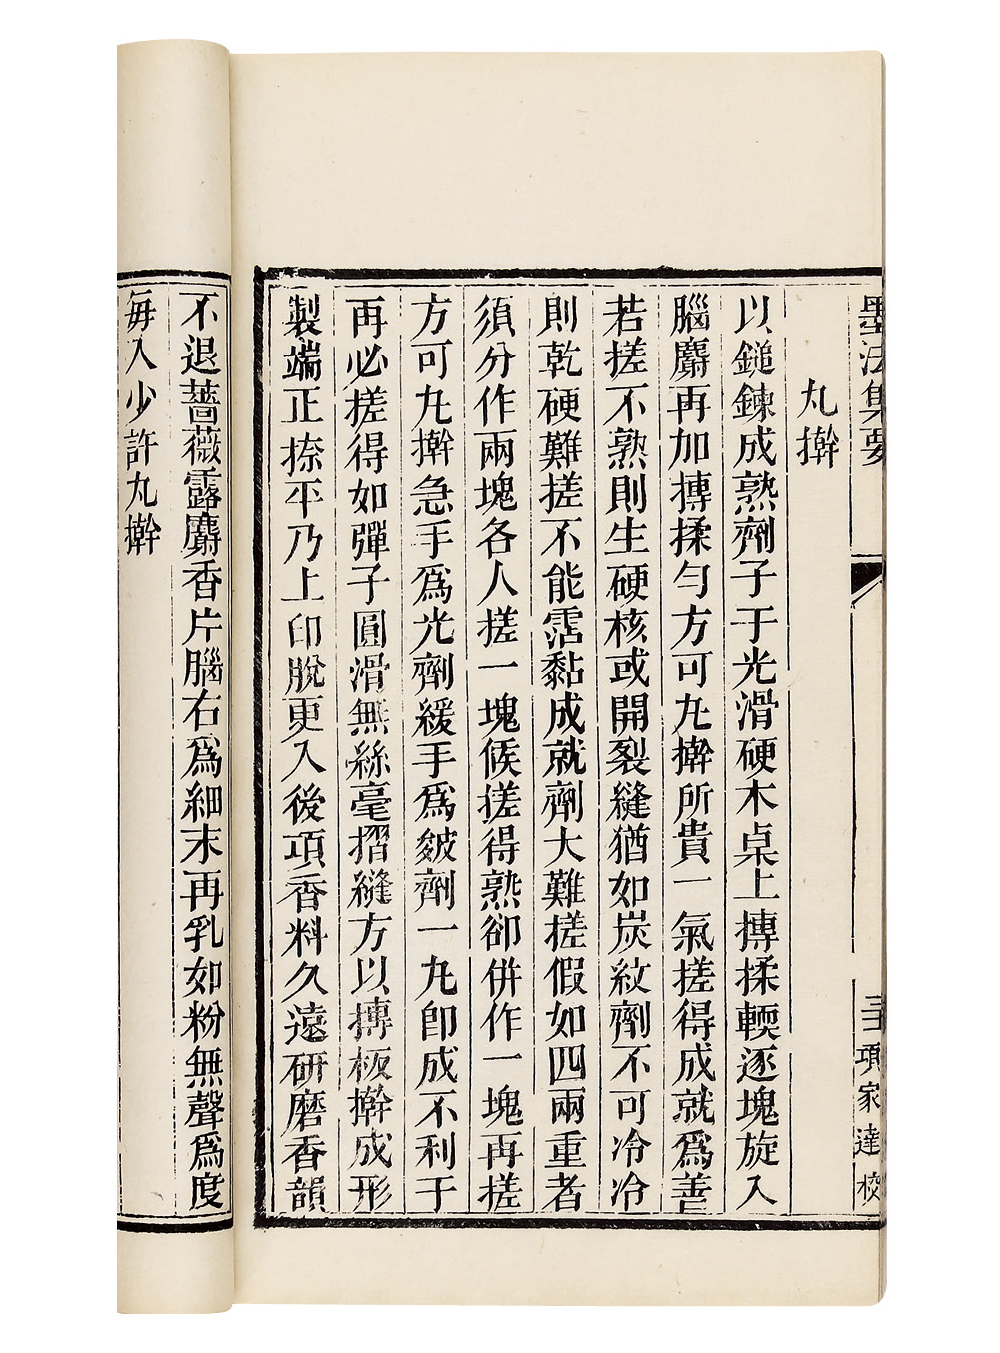 墨法集要
三十一 項家達校
丸擀
以鎚鍊成熟劑子于光滑硬木桌上摶揉輭逐塊旋入
腦麝再加摶揉勻方可丸擀所貴一氣搓得成就爲善
若搓不熟則生硬核或開裂縫猶如炭紋劑不可冷冷
則乾硬難搓不能霑黏成就劑大難搓假如四兩重者
須分作兩塊各人搓一塊候搓得熟卻併作一塊再搓
方可丸擀急手爲光劑緩手爲皴劑一丸卽成不利于
再必搓得如彈子圓滑無絲毫摺縫方以摶板擀成形
製端正捺平乃上印脫更入後項香料久遠研磨香韻
不退薔薇露麝香片腦右爲細末再乳如粉無聲爲度
每入少許丸擀